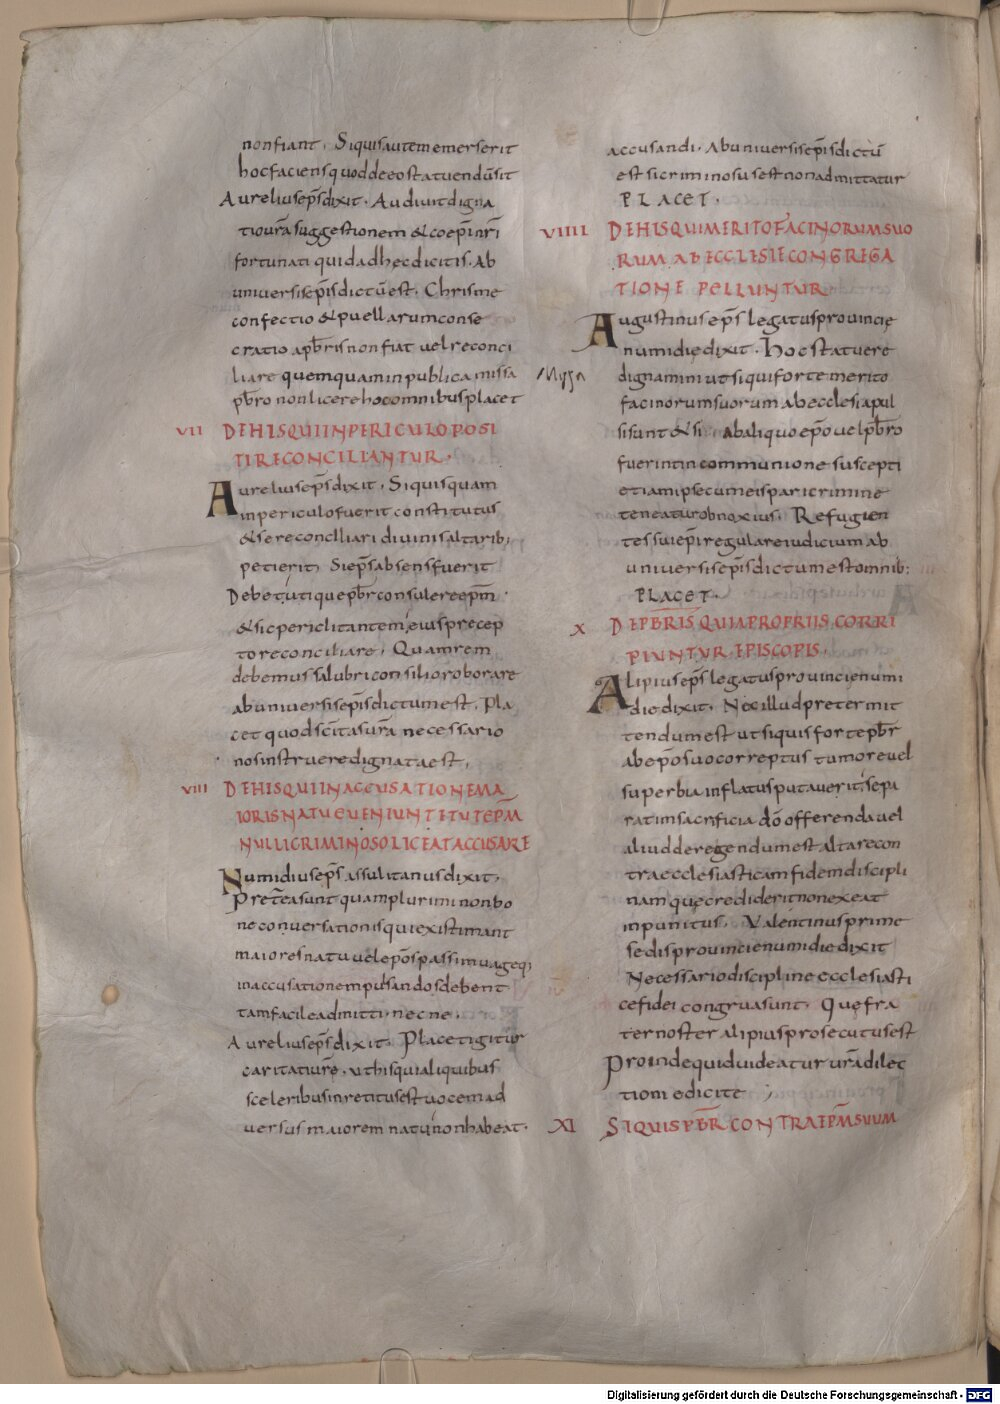 non fiant. Siquis autem emerserit
hoc faciens quod de eo statuendū sit
Aurelius ep̄s dixit. Audiuit digna
tio ur̄a suggestionem & coep̄i nr̄i
fortunati quid ad hec dicitis. Ab
uniuersis ep̄is dictū est. Chrisme
confectio & puellarum conse
cratio a pb̄ris non fiat uel reconci
liare quemquam in publica missa
pb̄ro non licere hoc omnibus placet
VII DE HIS QUI IN PERICULO POSI
TI RECONCILIANTUR.
Aurelius ep̄s dixit. Siquisquam
in periculo fuerit constitutus
& se reconciliari diuinis altarib;
petierit. Si ep̄s absens fuerit
Debet utique pb̄r consulere ep̄m.
& sic periclitantem eius precep
to reconciliare. Quam rem
debemus salubri consilio roborare
ab uniuersis ep̄is dictum est. Pla
cet quod sc̄itas ur̄a necessario
nos instruere dignata est.
VIII DE HIS QUI IN ACCUSATIONE MA
IORIS NATU EUENIUNT ET UT EP̄M
NULLI CRIMINOSO LICEAT ACCUSARE
Numidius ep̄s assulitanus dixit.
Preterea sunt quam plurimi non bo
ne conuersationis qui existimant
maiores natu uel ep̄os passim uage qi
in accusatione mpulsandos debent
tam facile admitti. necne.
Aurelius ep̄s dixit. Placet igitur
caritati ur̄e. ut his qui aliquibus
sceleribus inretitus est uocem ad
uersus maiorem natu non habeat.
accusandi. Ab uniuersis ep̄is dictū
est si criminosus est non admittatur
PLACET.
VIIII DE HIS QUI MERITO FACINORUM SUO
RUM AB ECCLESIE CONGREGA
TIONE PELLUNTUR.
Augustinus ep̄s legatus prouincie
numidie dixit. Hoc statuere
dignamini ut siqui forte merito
facinorum suorum ab ecclesia pul
si sunt & si ab aliquo ep̄o uel pb̄ro
fuerint in communione suscepti
etiam ipse cum eis pari crimine
teneatur obnoxius. Refugien
tes sui ep̄i regulare iudicium ab
uniuersis ep̄is dictum est omnib;
PLACET.
X DE PB̄RIS QUI A PROPRIIS CORRI
PIUNTUR EPISCOPIS.
Alipius ep̄s legatus prouincie numi
die dixit. Nec illud pretermit
tendum est ut siquis forte pb̄r
ab ep̄o suo correptus tumore uel
superbia inflatus putauerit sepa
ratim sacrificia dō offerenda uel
aliud deregendum est altare con
tra ecclesiasticam fidem discipli
namque crediderit non exeat
inpunitus. Valentinus prime
sedis prouincie numidie dixit
Necessario discipline ecclesiasti
ce fidei congrua sunt. Que fra
ter noster alipius prosecutus est
Proinde quid uideatur ur̄a dilec
tioni edicite ;
XI SIQUIS PB̄R CONTRA EP̄M SUUM
Digitalisierung gefördert durch die Deutsche Forschungsgemeinschaft - DFG